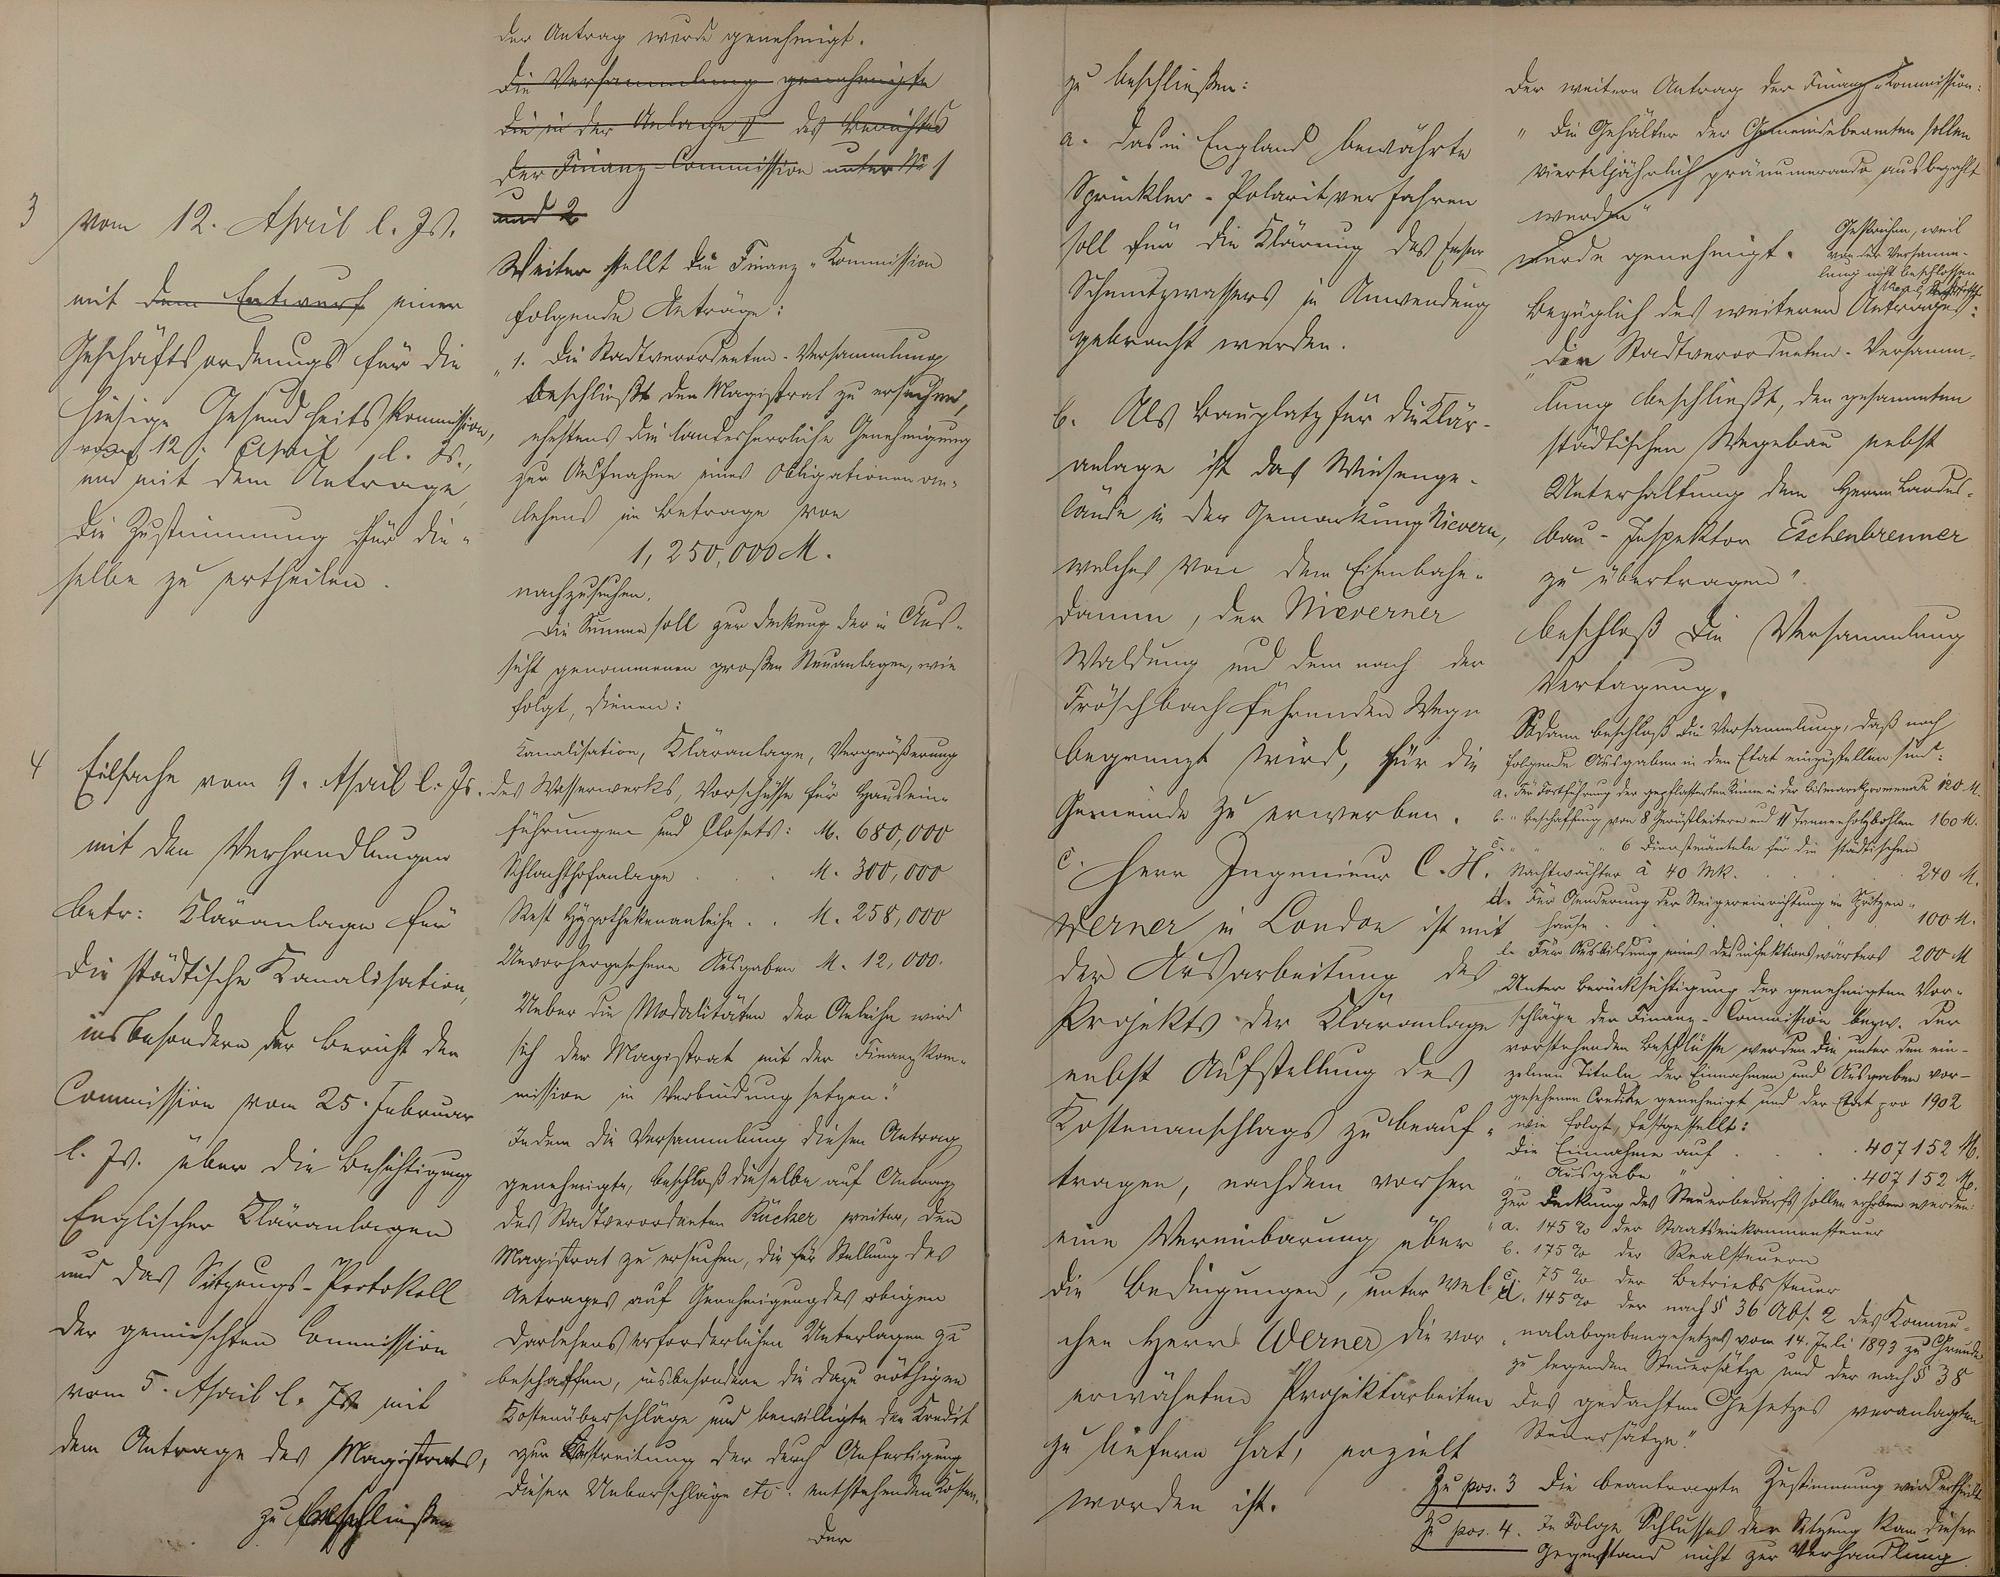 3 vom 12. April l. Js.
mit dem Entwurf einer
Geschäftsordnungs für die
hiesige Gesundheitskommission,
vom 12. April l. Js.,
und mit dem Antrage,
die Zustimmung für die-
selbe zu ertheilen.
4 Eilsache vom 9. April l. Js.
mit den Verhandlungen
betr: Kläranlage für
die städtische Kanalisation,
insbesondere der Bericht der
Commission vom 25. Februar
l. Js. über die Besichtigung
Englischer Kläranlagen
und das Sitzungs-Protokoll
der gemischten Commission
vom 5. April l. Js. mit
dem Antrage des Magistrats,
zu beschließen
der Antrag wurde genehmigt.
die Versammlung genehmigte
die in der Anlage II des Berichtes
der Finanz-Commission unter № 1
und 2
Weiter stellt die Finanz-Kommission
folgende Anträge:
"1. Die Stadtverordneten-Versammlung
beschließt den Magistrat zu ersuchen,
ehestens die landesherrliche Genehmigung
zur Aufnahme eines Obligationenan-
lehens im Betrage von
1,250,000 M.
nachzusuchen.
Die Summe soll zur Deckung der in Aus-
sicht genommenen großen Neuanlagen, wie
folgt, dienen:
Kanalisation, Kläranlage, Vergrößerung
des Wasserwerks, Vorschüsse für Hausein-
führungen und Closets: M. 680,000
Schlachthofanlage . . M. 300,000
Rest Hypothekenanleihe . . M. 258,000
Unvorhergesehene Ausgaben M. 12,000.
Ueber die Modalitäten der Anleihe wird
sich der Magistrat mit der Finanzkom-
mission in Verbindung setzen."
Indem die Versammlung diesen Antrag
genehmigte, beschloß dieselbe auf Antrag
des Stadtverordneten Rücker weiter, den
Magistrat zu ersuchen, die für Stellung des
Antrages auf Genehmigung des obigen
Darlehens erforderlichen Unterlagen zu
beschaffen, insbesondere die dazu nöthigen
Kostenüberschläge und bewilligte den Kredit
zur Bestreitung der durch Anfertigung
dieser Ueberschläge etc. entstehenden Kosten.
Der
zu beschließen:
a. Das in England bewährte
Sprinkler-Polaritverfahren
soll für die Klärung des Emser
Schmutzwassers in Anwendung
gebracht werden.
b. Als Bauplatz für die Klär-
anlage ist das Wiesenge-
lände in der Gemarkung Nievern,
welches von dem Eisenbahn-
damm, der Nieverner
Waldung und dem nach der
Fröschbach führenden Wege
begrenzt wird, für die
Gemeinde zu erwerben.
c. Herr Ingenieur C. H.
Werner in London ist mit
der Ausarbeitung des
Projekts der Kläranlage
nebst Aufstellung des
Kostenanschlags zu beauf-
tragen, nachdem vorher
eine Vereinbarung über
die Bedingungen, unter wel-
chen Herr Werner die vor-
erwähnten Projektarbeiten
zu liefern hat, erzielt
worden ist.
Der weitere Antrag der Finanz-Kommission:
"Die Gehälter der Gemeindebeamten sollen
vierteljährlich pränumerando ausbezahlt
werden"
wurde genehmigt.
Gestrichen, weil
von der Versamm-
lung nicht beschlossen
Bezüglich des weiteren Antrages:
"Die Stadtverordneten-Versamm-
lung beschließt, den gesammten
städtischen Wegebau nebst
Unterhaltung dem Herrn Landes-
bau-Inspektor Eschenbrenner
zu übertragen"
beschloß die Versammlung
Vertagung.
Sodann beschloß die Versammlung, daß noch
folgende Ausgaben in den Etat einzustellen sind:
a. Für Fortführung der gepflasterten Rinne in der Bismarckpromenade 120 M.
b. " Beschaffung von 8 Gerüstleitern und 11 Tannenholzbohlen 160 M.
c. " " 6 Dienstmänteln für die städtischen
Nachtwächter à 40 Mk. . . . 240 M.
d. Für Aenderung der Steigereinrichtung im Spritzen-
hause . . . . 100 M.
e. Für Ausbildung eines Desinfektionswärters 200 M
"Unter Berücksichtigung der genehmigten Vor-
schläge der Finanz-Commission bezw. der
vorstehenden Beschlüsse werden die unter den ein-
zelnen Titeln der Einnahmen und Ausgaben vor-
gesehenen Credite genehmigt und der Etat pro 1902
wie folgt, festgestellt:
Die Einnahme auf . . . . 407152 M.
" Ausgabe " . . . 407152 M.
Zur Deckung des Steuerbedarfs sollen erhoben werden:
a. 145% der Staatseinkommensteuer
b. 175% der Realsteuern
c. 75% der Betriebssteuer
d. 145% der nach § 36 Abs. 2 des Kommu-
nalabgabengesetzes vom 14. Juli 1893 zu Grunde
zu legenden Steuersätze und der nach § 38
des gedachten Gesetzes veranlagten
Steuersätze."
Zu pos. 3 Die beantragte Zustimmung wird ertheilt
Zu pos. 4. In Folge Schlusses der Sitzung kam dieser
Gegenstand nicht zur Verhandlung.